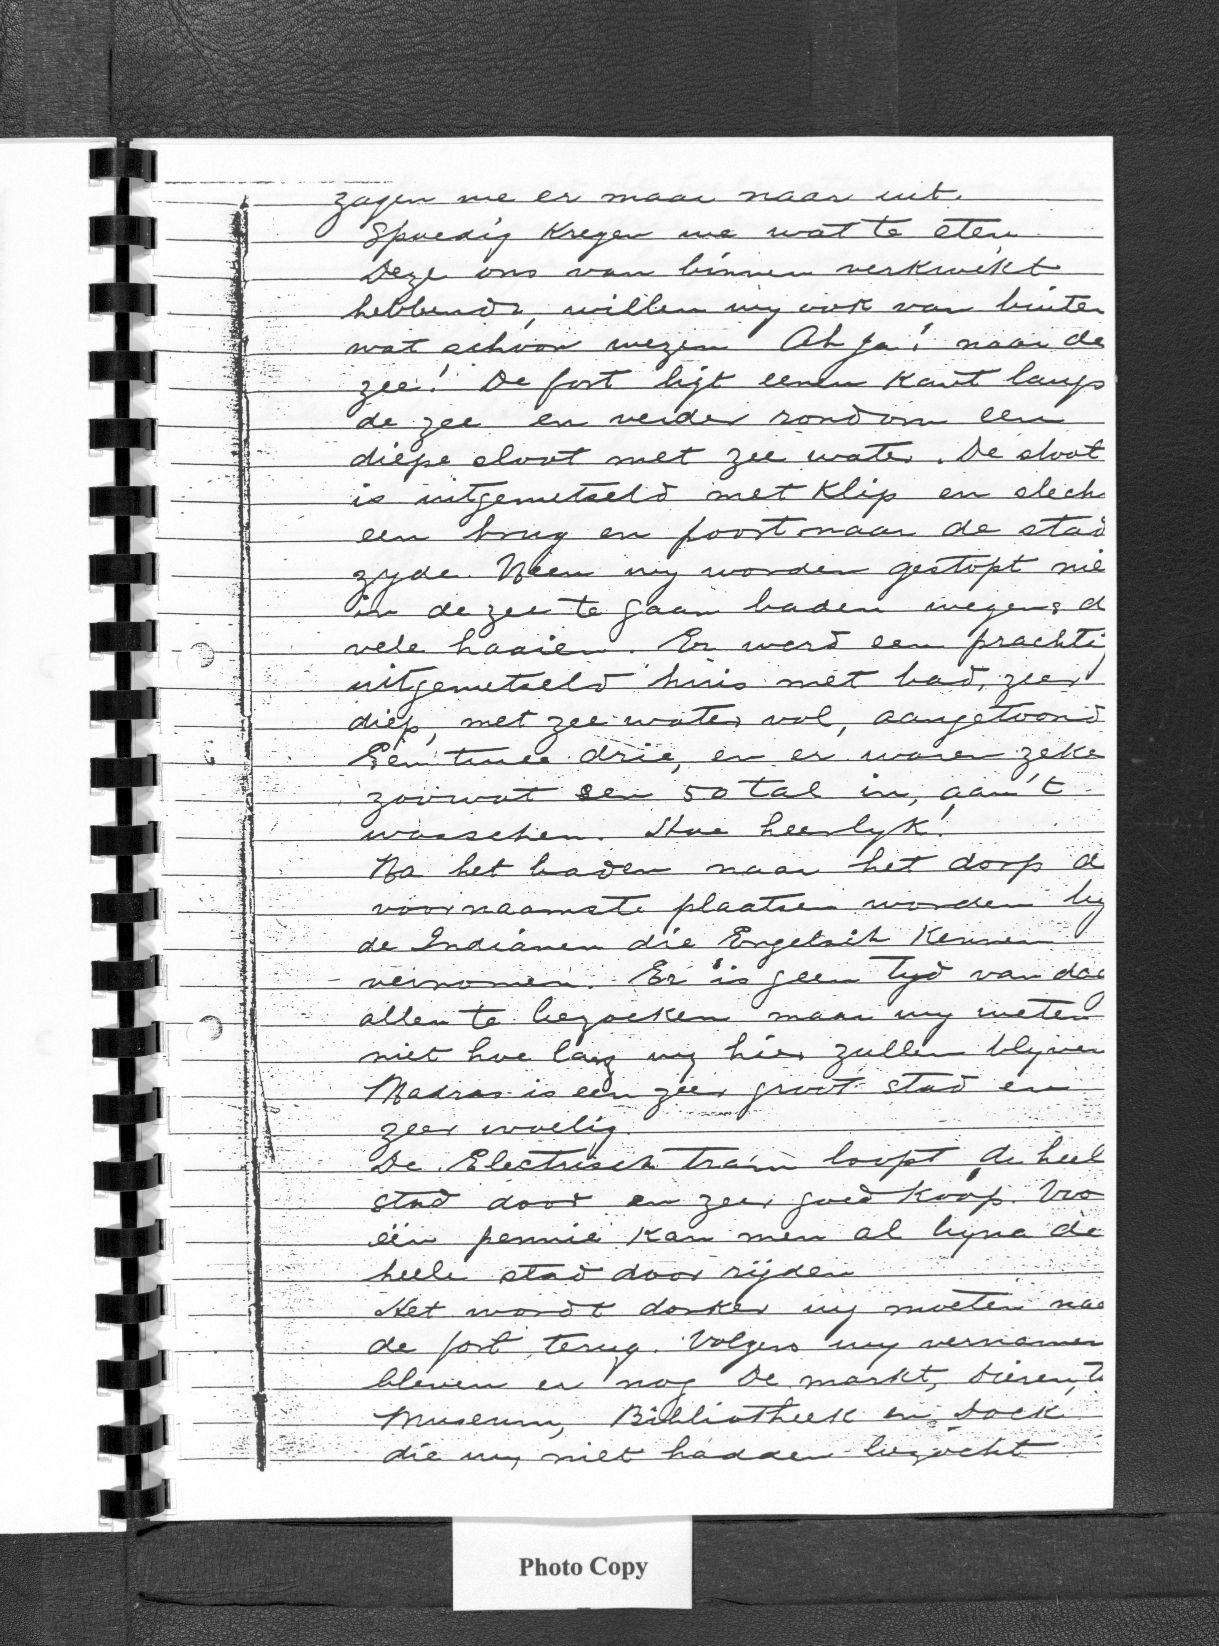 zagen we er maar naar uit.
Spoedig kregen we wat te eten
Deze ons van binnen verkwikt
hebbende, willen wy ook van buiten
wat schoon wezen Ah ja! naar de
zee! De fort ligt eenen kant langs
de zee en verder rondom een
diepe sloot met zee water. De sloot
is uitgemetseld met klip en slech
een brug en poort naar de stad
zyde. Neen wy worden gestopt nie
in de zee te gaan baden wegens d
vele haaien. Er werd een prachti
uitgemetseld huis met bad, zeer
diep, met zee water vol, aangetoond
Één twee drie, en er waren zeke
zoowat een 50 tal in, aan 't
wasschen. Hoe heerlyk!
Na het baden naar het dorp d
voornaamste plaatsen worden by
de Indianen die Engelsch kennen
vernomen. Er is geen tyd van dag
allen te bezoeken maar wy weten
niet hoe lang wy hier zullen blyven
Madras is een zeer groot stad en
zeer woelig
De Electrisch tram loopt de heel
stad door en zeer goed koop. Voo
één pennie kan men al byna de
heele stad door rijden
Het wordt donker wy moeten naa
de fort terug. Volgens wy vernamen
bleven er nog De markt, Dieren, t
Museum, Bibliotheek en Dock
die wy niet hadden bezocht
Photo Copy